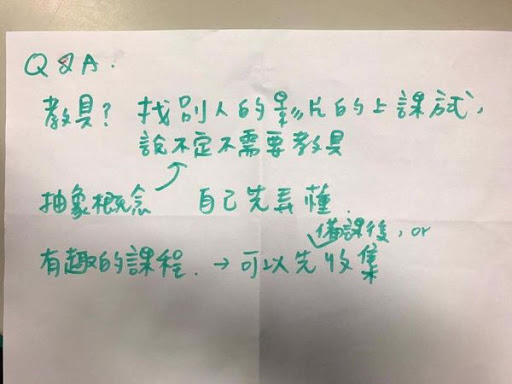 Q&A:
教具? 找別人的影片的上課試,
說不定不需要教具
抽象概念 自己先弄懂.
備課後, or
有趣的課程. → 可以先收集